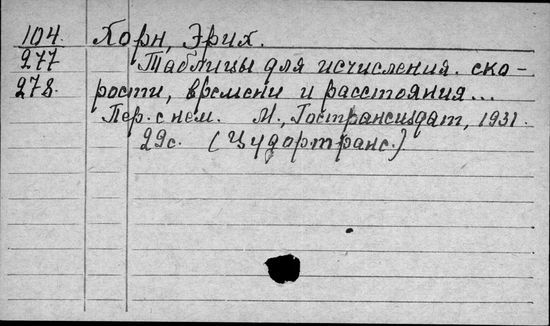 104. Корн, Эрих.
277 Таблицы для исчисления ско-
278. рости, времени и расстояния...
Пер. с нем. М., Гострансиздат, 1931.
29с. (Цудортранс.)